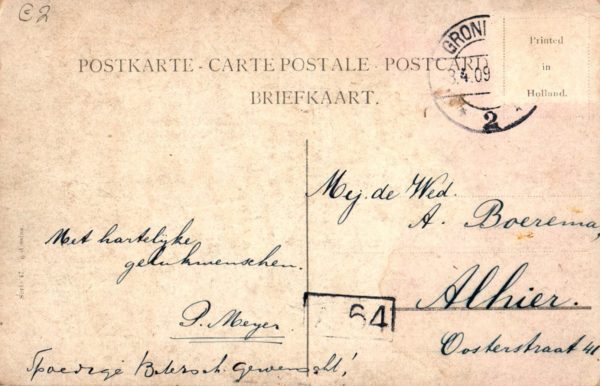 c2
POSTKARTE - CARTE POSTALE - POSTCARD
BRIEFKAART.
GRONI
3.4.09
2
Printed
in
Holland.
Mej. de Wed.
A. Boerema,
Alhier.
Oosterstraat 41
Met hartelijke
gelukwenschen.
P. Meyer
Spoedige gewenscht!
64
Serie 47.